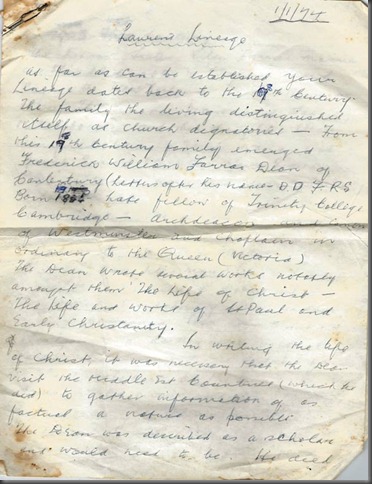 1/1/74
Laurens Lineage
as far as can be established your
Lineage dates back to the 19th Century.
The family the living distinguished
itself as church degnatories - From
this 19th Century family emerged
Frederick William Farrar Dean of
Canterbury (letters after his name - DD FRS
Born 18 late fellow of Trinity College
Cambridge - archdeacon
of Westminster and Chaplain in
ordinary to the Queen (Victoria)
The Dean wrote several works notably
amongst them The Life of Christ -
The Life and works of St Paul and
Early Christianity.
In writing the life
of Christ, it was necessary that the Dean
visit the Middle East Countries (which he
did) to gather information of as
factual a nature as possible
The Dean was described as a scholar
and would need to be. He died